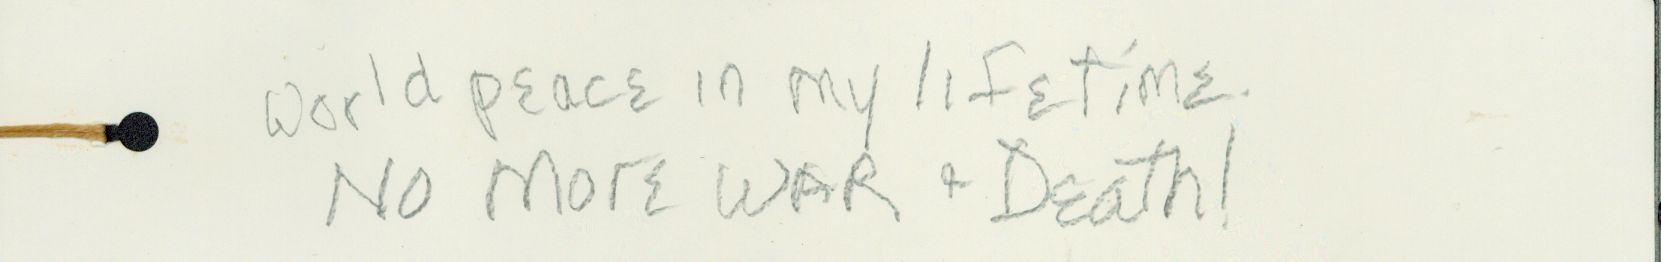 World peace in my lifetime.
No More WAR + Death!